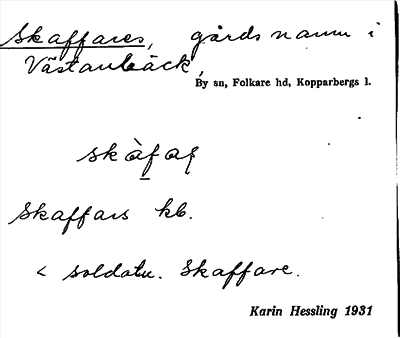 Skaffares, gårdsnamn i
Västanbäck,
By sn, Folkare hd, Kopparbergs l.
Skaffars kb.
< soldatn. Skaffare.
Karin Hessling 1931